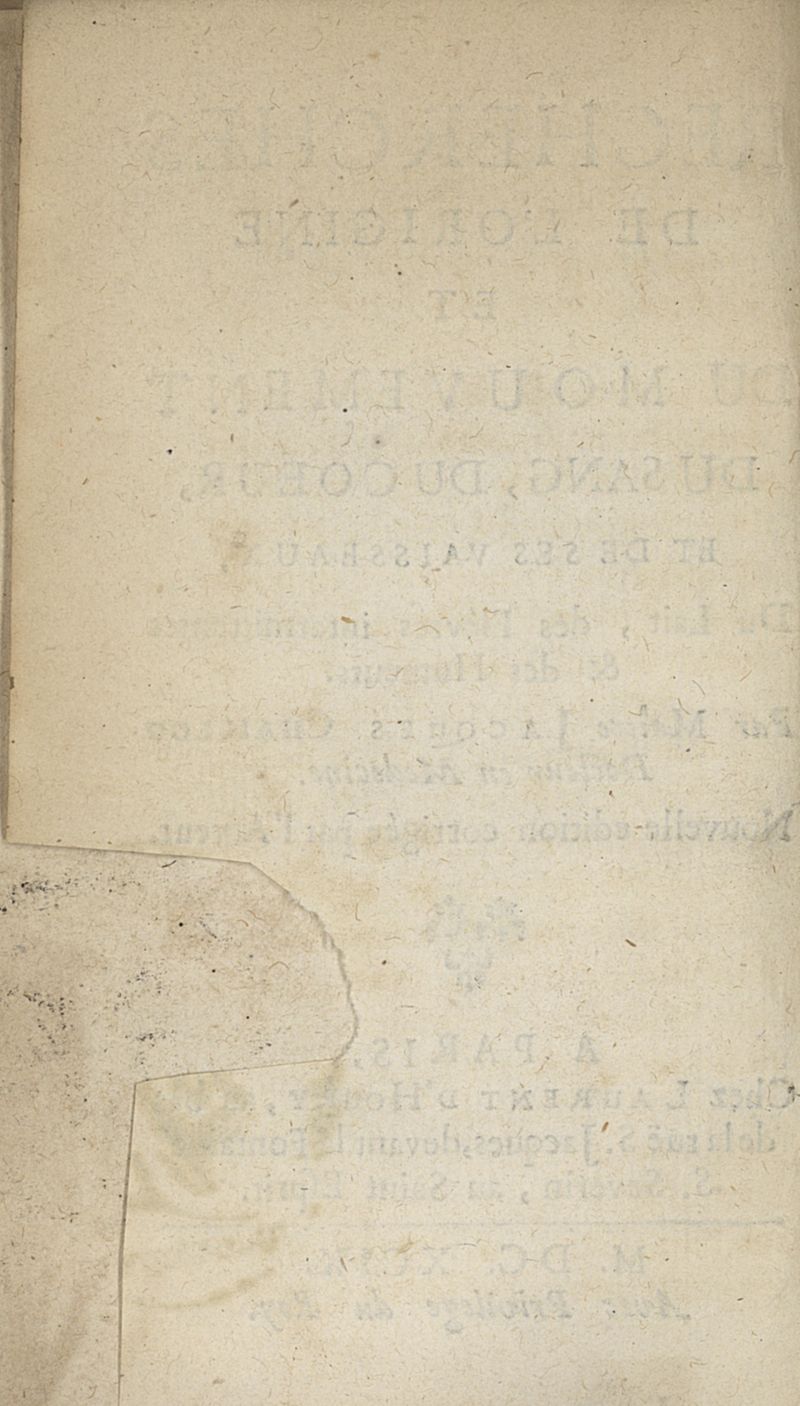 RECHERCHES
DE L'ORIGINE
ET
DU MOUVEMENT
DU SANG, DU COEUR,
ET DE SES VAISSEAUX,
Du Lait, des Fiévres intermittentes
& des Humeurs.
Par Maître JACQUES CHAILLOU
Docteur en Medecine.
Nouvelle edition corrigée par l'Auteur.
A PARIS,
Chez LAURENT D'HOURY,
de la ruë S. Jacques, devant la Fontaine
S. Severin, au Saint Esprit.
M. DC.
Avec Privilege du Roy.